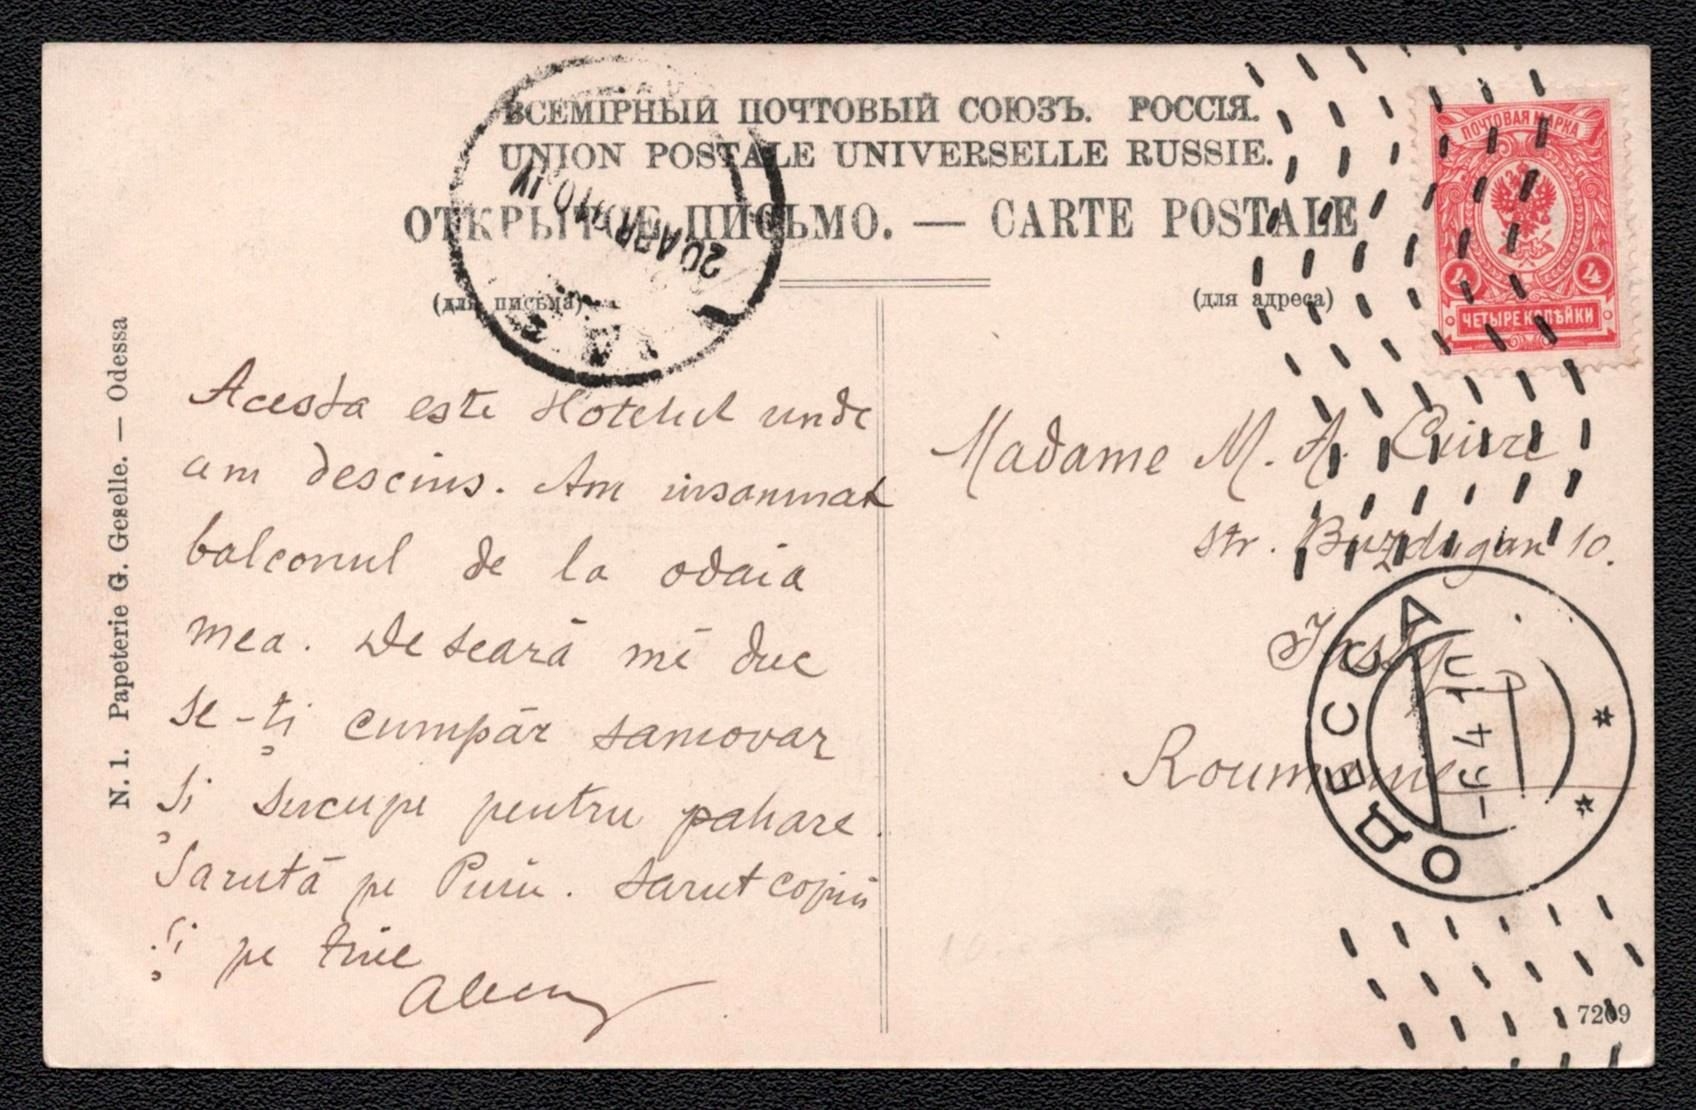 ВСЕМІРНЫЙ ПОЧТОВЫЙ СОЮЗЪ. РОССІЯ.
UNION POSTALE UNIVERSELLE RUSSIE.
ОТКРЫТОЕ ПИСЬМО. — CARTE POSTALE
(для письма)
(для адреса)
ПОЧТОВАЯ МАРКА
4 4
ЧЕТЫРЕ КОПѢЙКИ
20 APR 910
N. 1. Papeterie G. Geselle. — Odessa
Acesta este Hotelul unde
am descins. Am insemnat
balconul de la odaia
mea. De seară mĕ duc
se-ți cumpăr samovar
și sucupe pentru pahare.
Sarută pe Puiu. Sarut copiii
și pe tine
Madame M. A.
str. Buzdugan 10.
Iassy
Roumanie
ОДЕССА
-6 4 10
7209